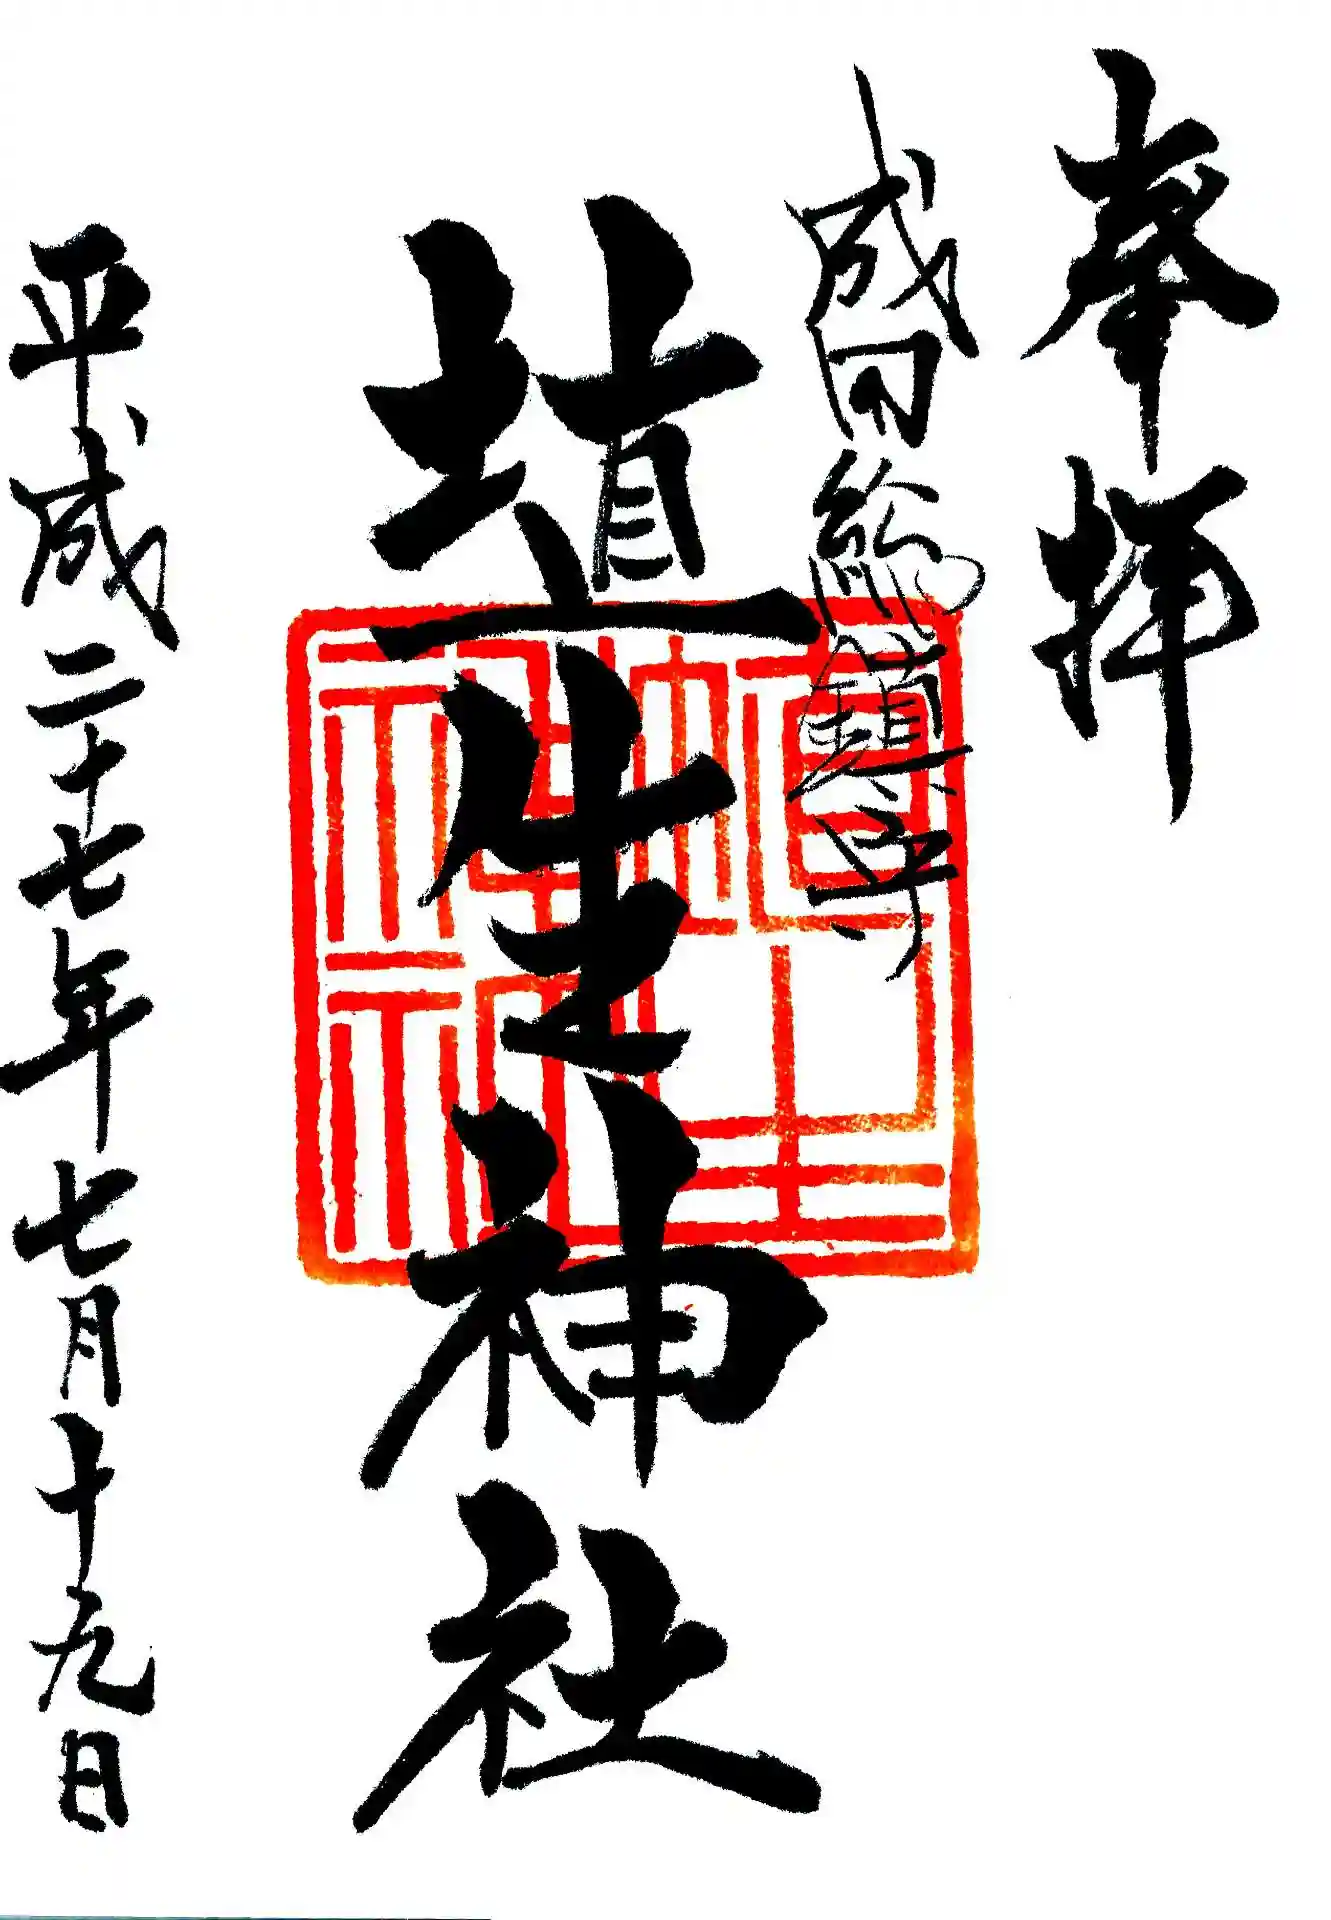 奉拝
成田総鎮守
埴生神社
埴生神社
平成二十七年七月十九日